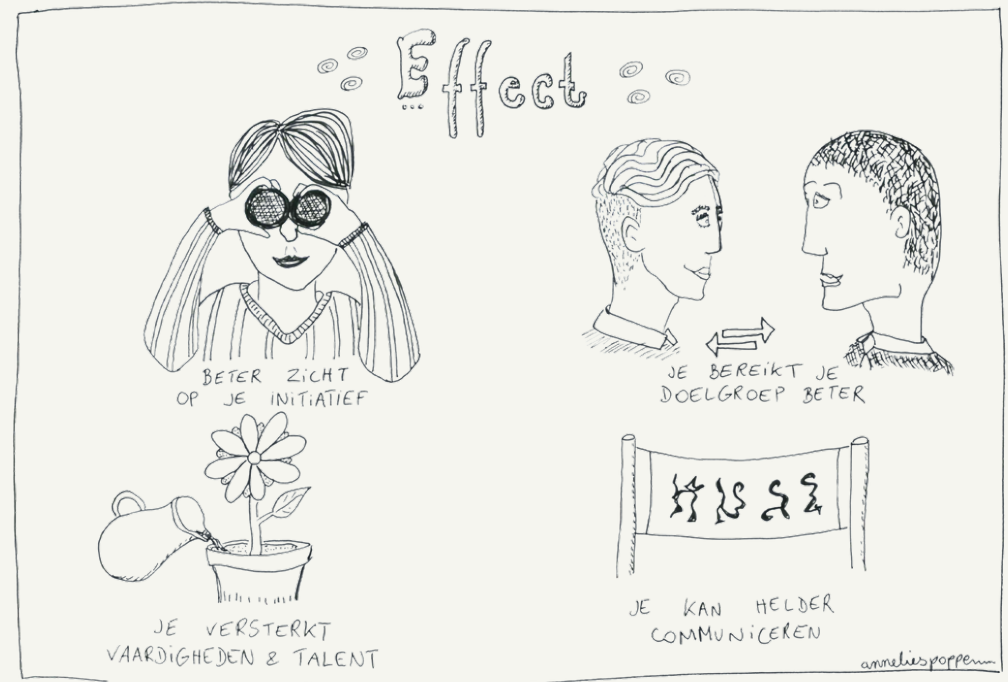 Effect
BETER ZICHT
OP JE INITIATIEF
JE BEREIKT JE
DOELGROEP BETER
JE VERSTERKT
VAARDIGHEDEN & TALENT
JE KAN HELDER
COMMUNICEREN